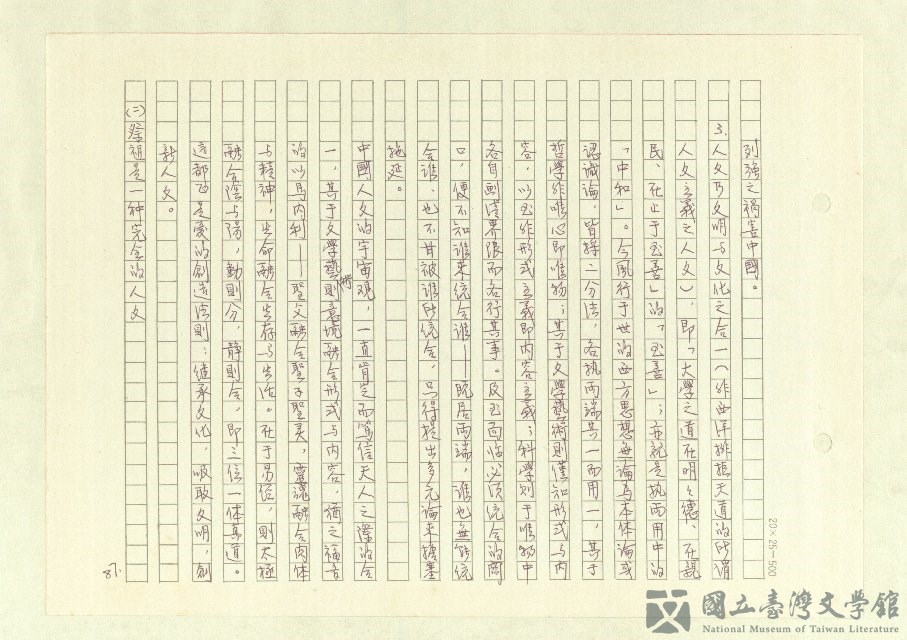 列強之禍害中國。
3.人文乃文明与文化之合一(非西洋排拒天道的所谓
人文主義之人文),即「大學之道在明々德、在親
民、在止于至善」的「至善」;亦就是执兩用中的
「中和」。今風行于世的西方思想無論为本体論或
認識論,皆採二分法,各执兩端其一而用一,其于
哲學非唯心即唯物;其于文學藝術則僅知形式与內
容,以至非形式主義即內容主義;科學則于唯物中
各自劃清界限而各行其事。及至面临必須統合的関
口,便不知誰來統合誰——既居兩端,誰也無能統
合誰、也不甘被誰所統合,只得提出多元論來搪塞
拖延。
中國人文的宇宙观,一直肯定而篤信天人之際的合
一,其于文學藝術則意境融合形式与內容,猶之福音
的以馬內利——聖父融合聖子聖灵,靈魂融合肉体
与精神,生命融合生存与生活。在于易經,則太極
融合陰与陽,動則分,静則合,即三位一体真道。
這都正是愛的創造法則:继承文化,吸取文明,創
新人文。
(二)祭祖是一种完全的人文
87.
20×25=500
國立臺灣文學館
National Museum of Taiwan Literature